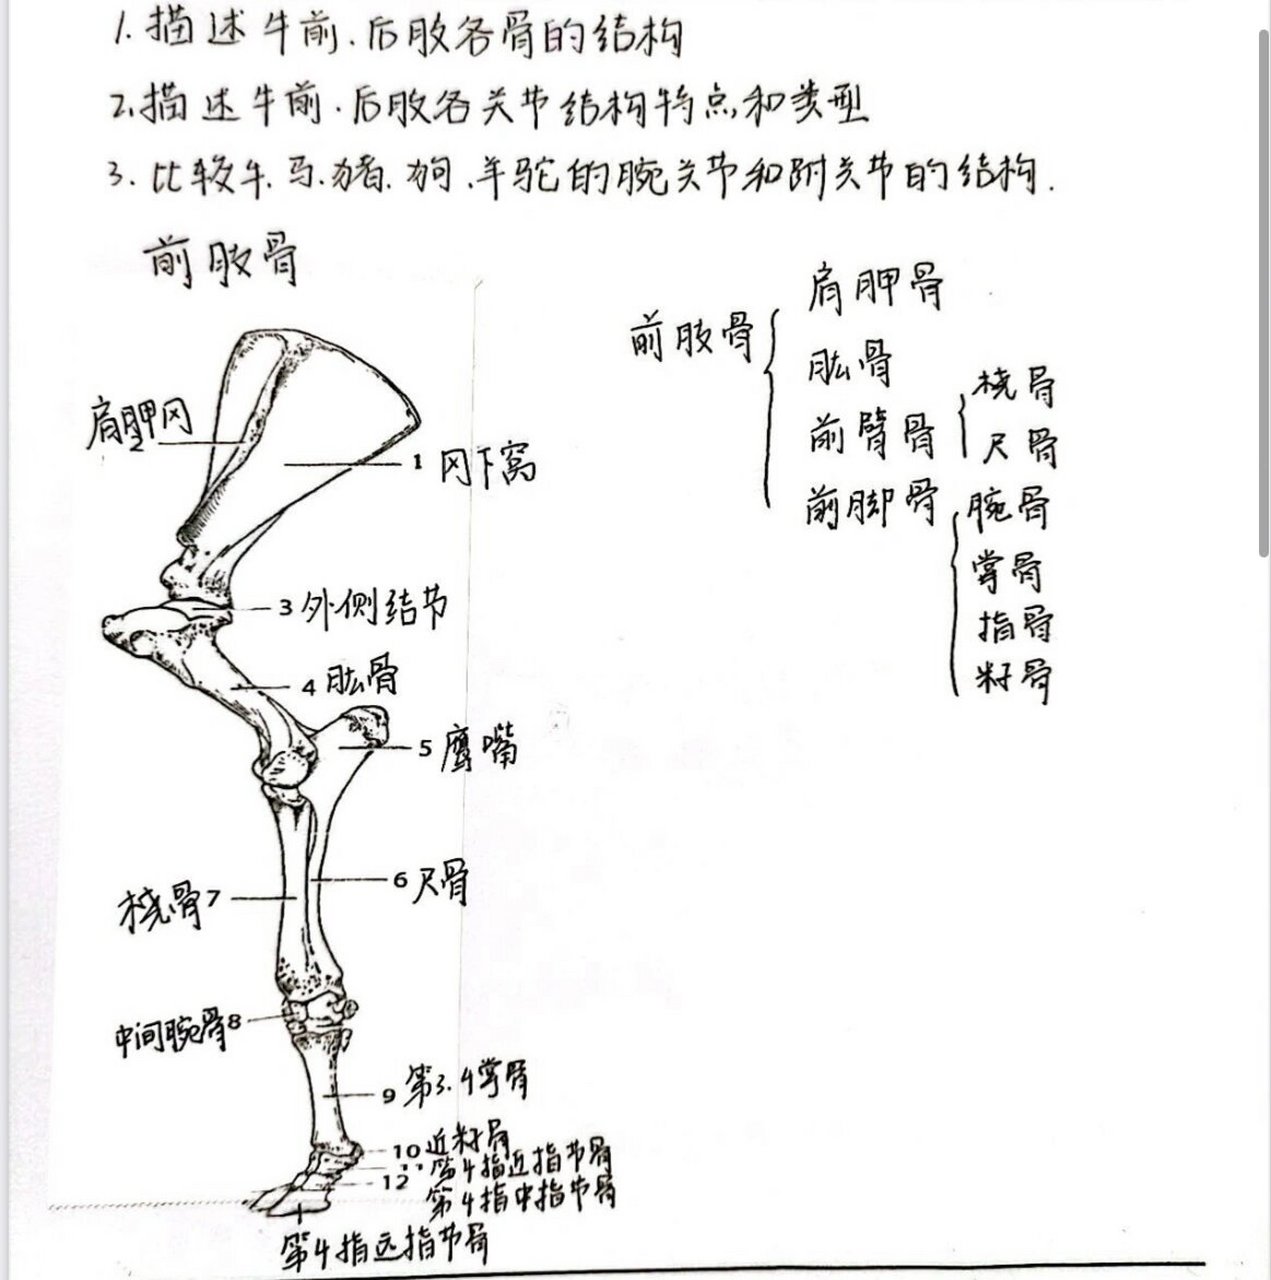 1.描述牛前.后肢各骨的结构
2.描述牛前.后肢各关节结构特点和类型
3.比较牛.马.猪.狗.羊驼的腕关节和跗关节的结构.
前肢骨
肩胛骨
前肢骨
肱骨
桡骨
前臂骨
尺骨
前脚骨
腕骨
掌骨
指骨
籽骨
肩胛冈
2
1 冈下窝
3 外侧结节
4 肱骨
5 鹰嘴
6 尺骨
桡骨7
中间腕骨8
9 第3.4掌骨
10 近籽骨
11 第4指近指节骨
12 第4指中指节骨
第4指远指节骨